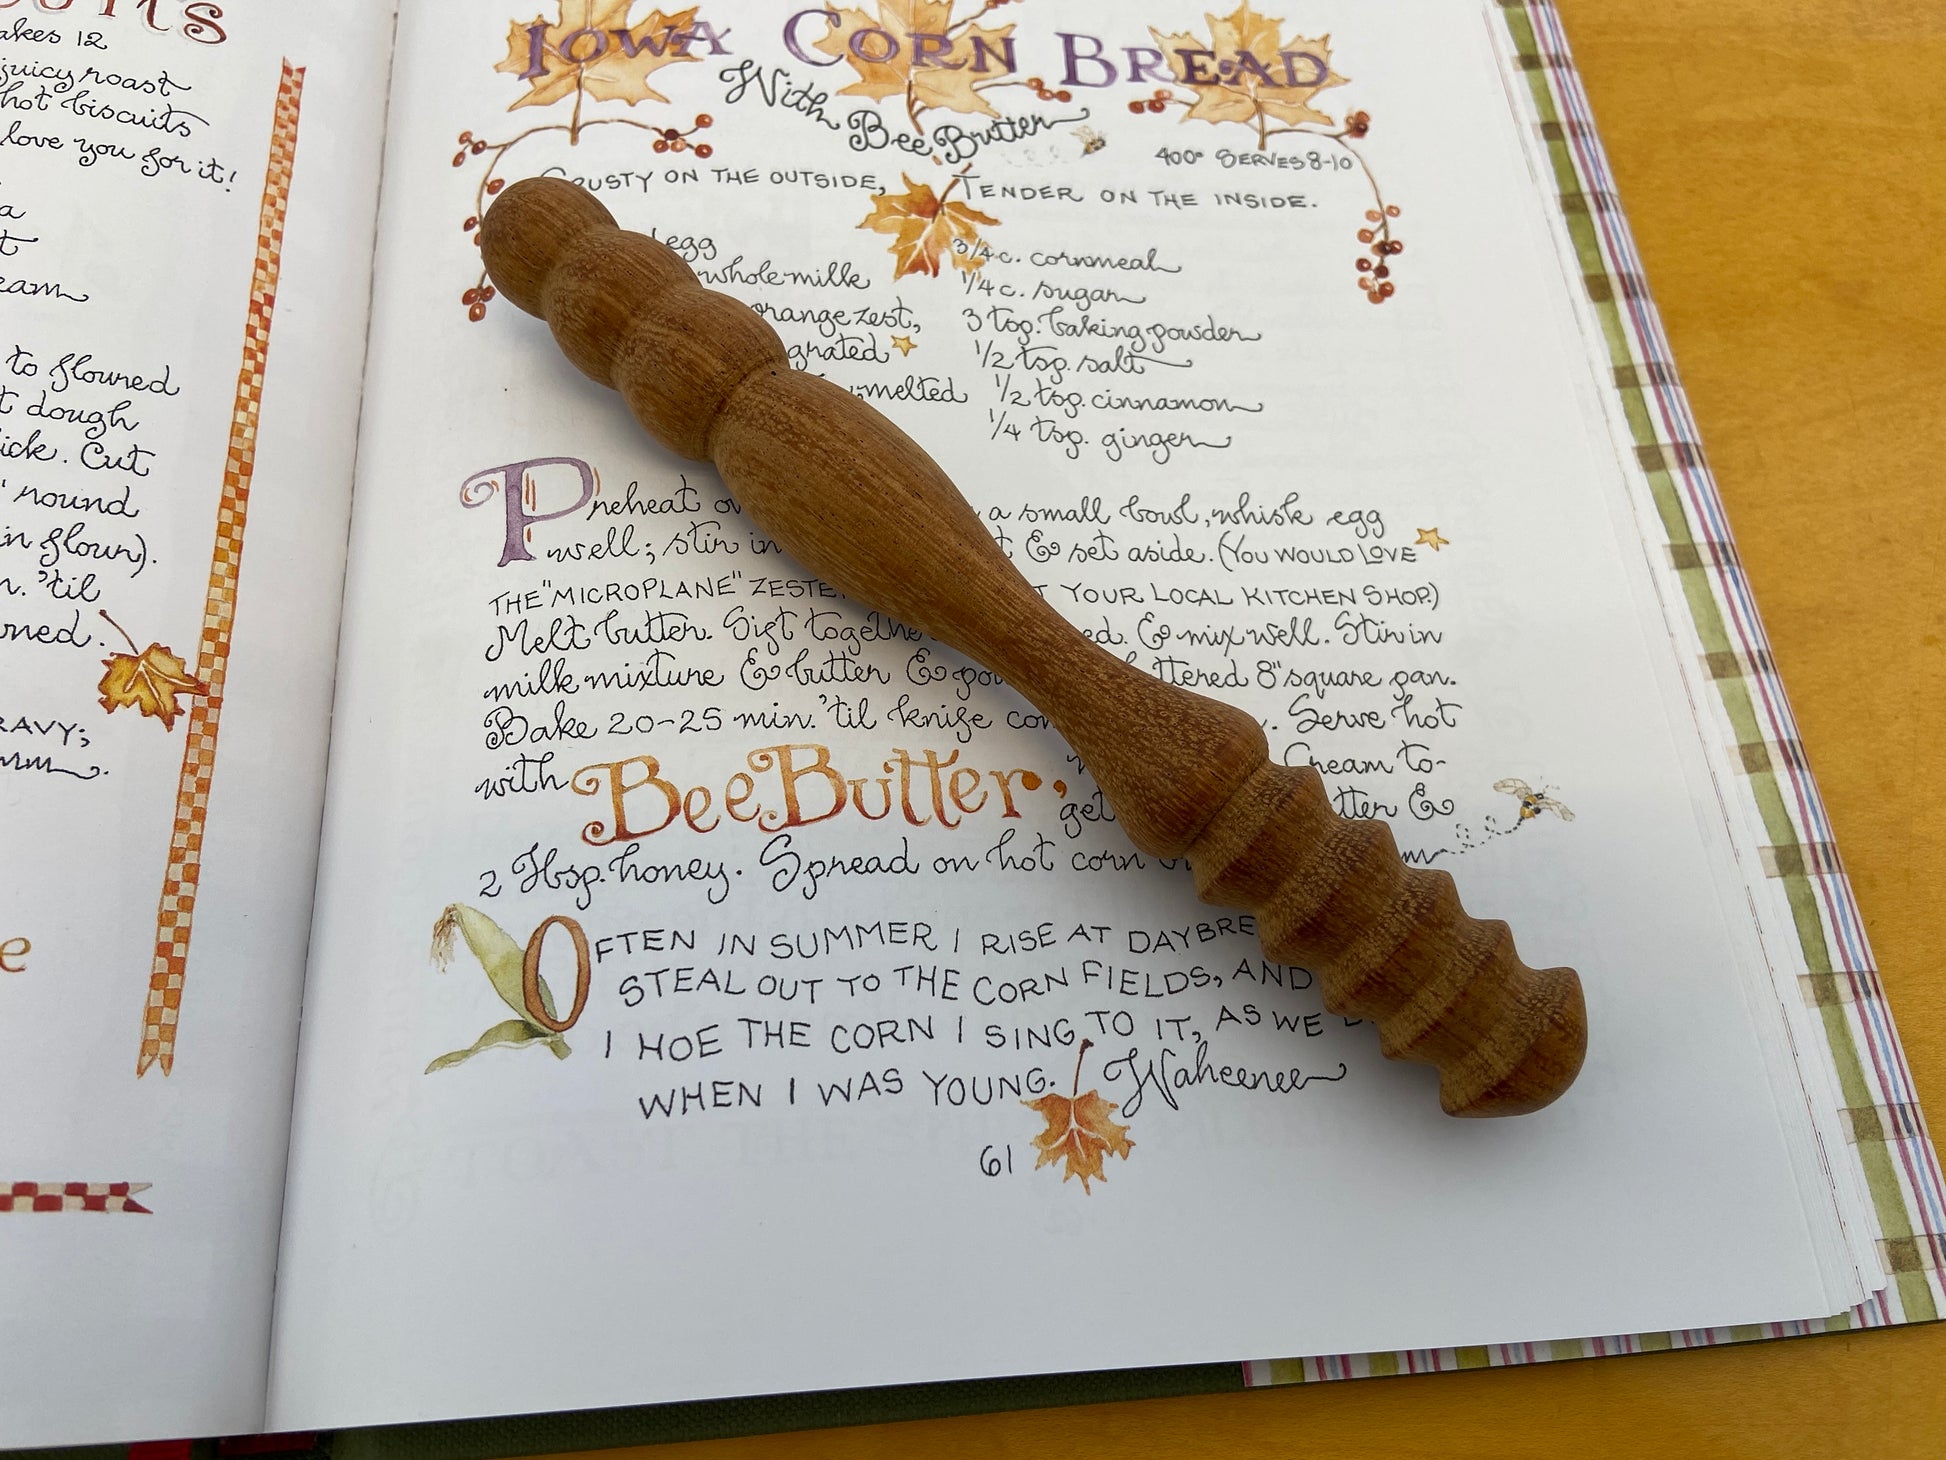 akes 12
juicy roast
hot biscuits
love you for it!
a
t
eam
to floured
t dough
ick. Cut
" round
in flour).
n. 'til
rned.
RAVY;
mm.
e
IOWA CORN BREAD
With Bee Butter
400° SERVES 8-10
CRUSTY ON THE OUTSIDE, TENDER ON THE INSIDE.
egg
whole milk
orange zest,
grated
melted
3/4 c. cornmeal
1/4 c. sugar
3 tsp. baking powder
1/2 tsp. salt
1/2 tsp. cinnamon
1/4 tsp. ginger
Preheat a small bowl, whisk egg
well; stir in & set aside. (YOU WOULD LOVE
THE "MICROPLANE" YOUR LOCAL KITCHEN SHOP.)
Melt butter. Sift & mix well. Stir in
milk mixture & butter & 8" square pan.
Bake 20-25 min. 'til knife Serve hot
with Bee Butter, Cream to-
get &
2 Tbsp. honey. Spread on hot corn
OFTEN IN SUMMER I RISE AT
STEAL OUT TO THE CORN FIELDS, AND
I HOE THE CORN I SING TO IT, AS WE
WHEN I WAS YOUNG. Waheenee
61